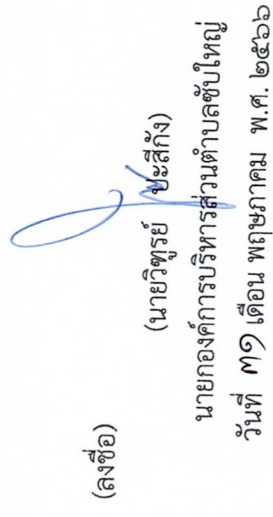 (ลงชื่อ)
(นายวิฑูรย์ ปะสีกัง)
นายกองค์การบริหารส่วนตำบลซับใหญ่
วันที่ ๓๑ เดือน พฤษภาคม พ.ศ. ๒๕๖๖